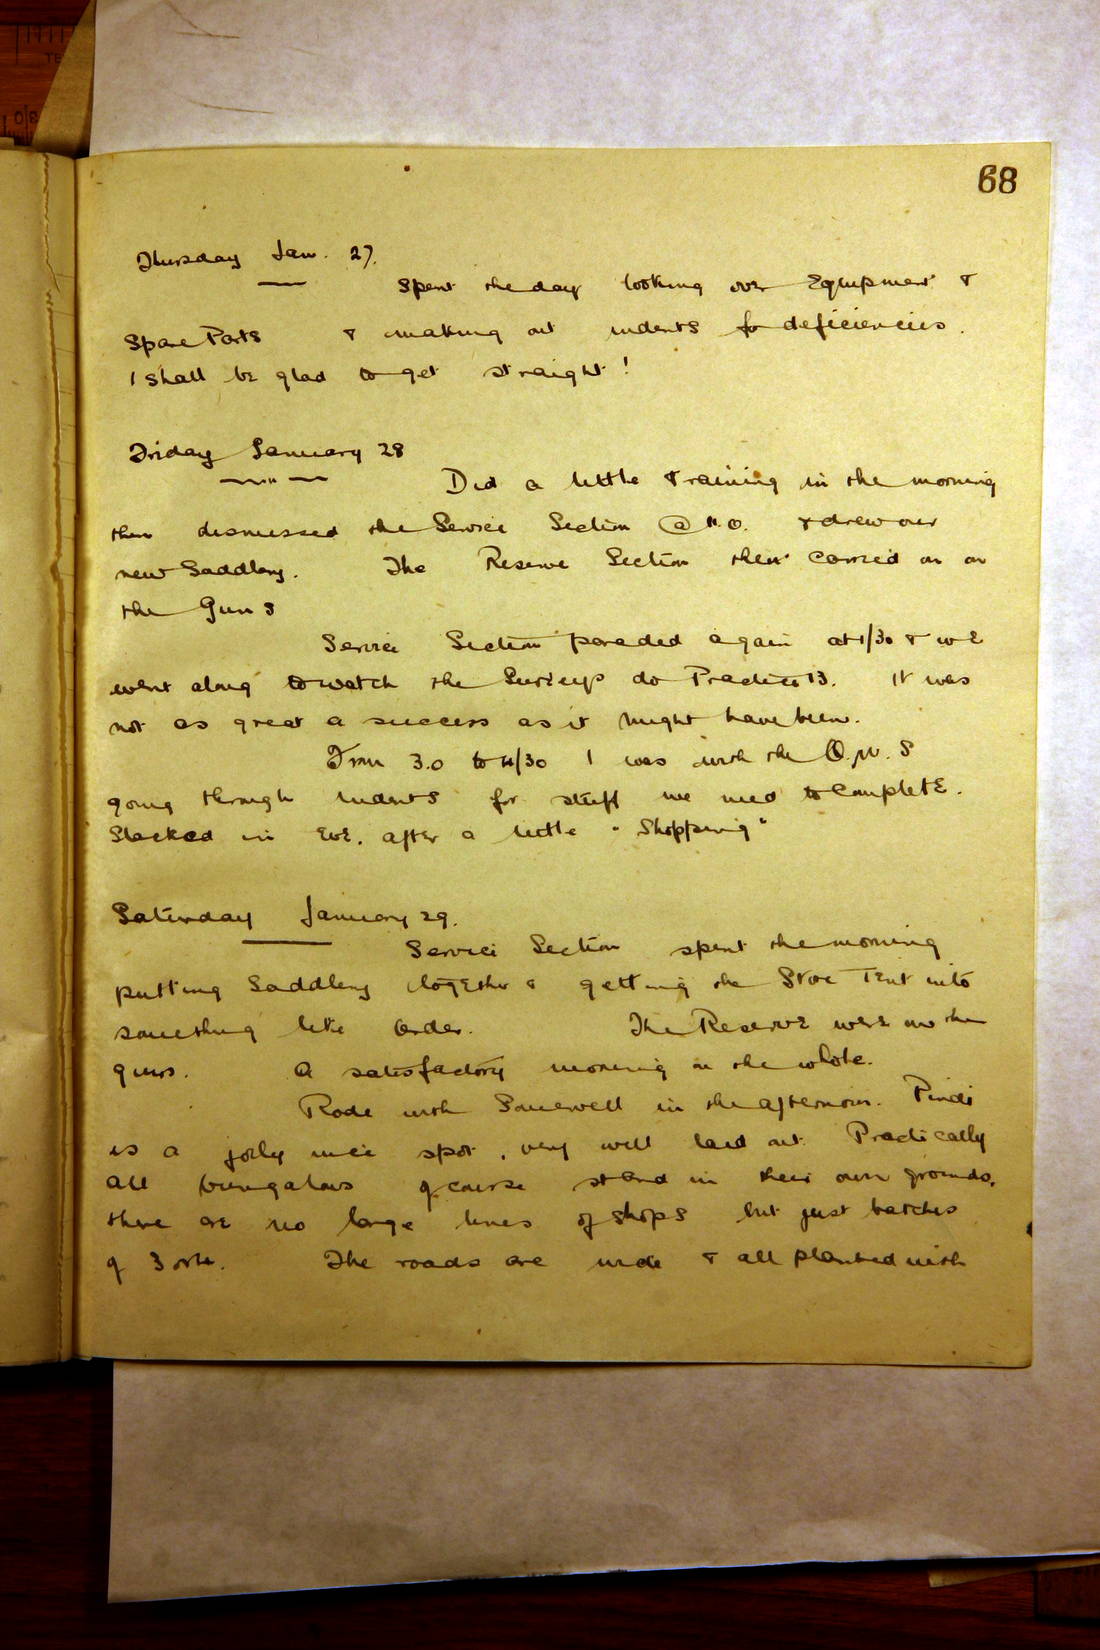 68
Thursday Jan. 27.
Spent the day looking over Equipment &
Spare Parts & making out indents for deficiencies.
I shall be glad to get straight!
Friday January 28
Did a little training in the morning
then dismissed the Service Section @ 11.0. & drew our
new Saddlery. The Reserve Section then carried on on
the Guns
Service Section paraded again at 1/30 & we
went along to watch the do Practice 13. It was
not as great a success as it might have been.
From 3.0 to 4/30 I was with the Q.M.S
going through indents for stuff we need to complete.
Slacked in Eve. after a little "Shopping"
Saturday January 29.
Service Section spent the morning
putting Saddlery together & getting the Store Tent into
something like Order. The Reserve were on the
guns. A satisfactory morning on the whole.
Rode with in the afternoon. Pindi
is a jolly nice spot, very well laid out. Practically
all bungalows of course stand in their own grounds,
there are no large lines of shops but just batches
of 3 or 4. The roads are wide & all planted with